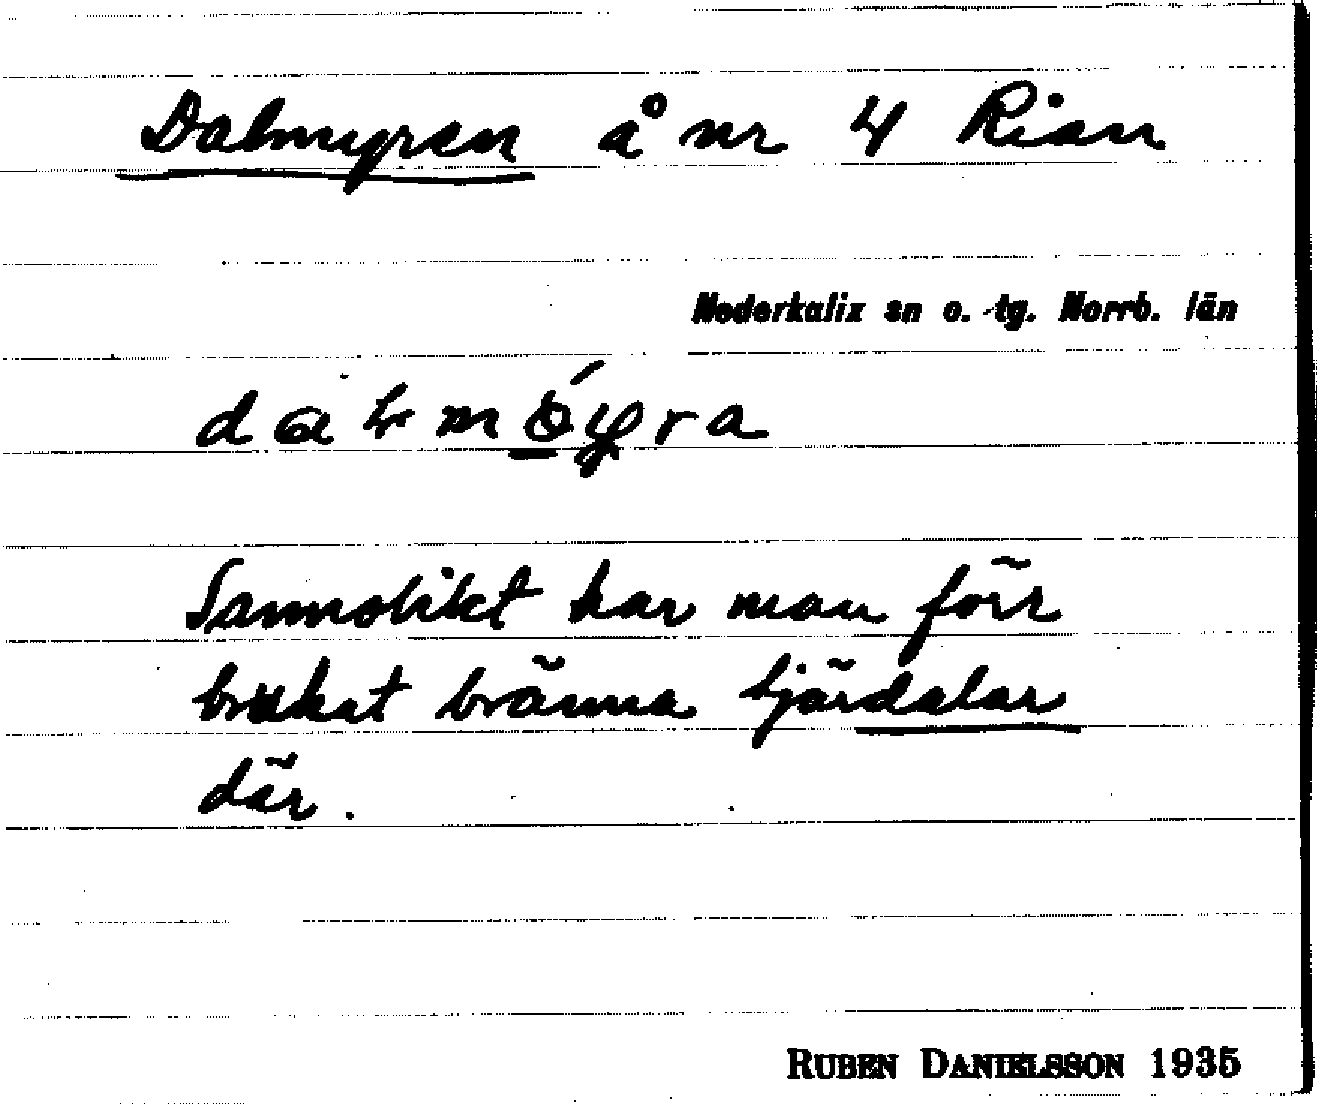 Dalmyran å nr 4 Rian
Nederkalix sn o. tg. Norrb. län
Sannolikt har man förr
brukat bränna tjärdalar
där.
RUBEN DANIELSSON 1935